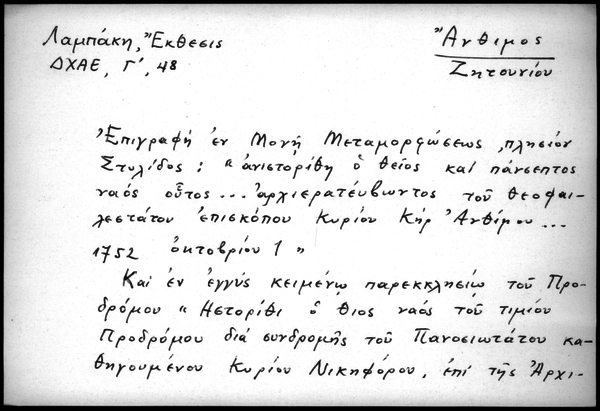 Λαμπάκη, Ἔκθεσις
ΔΧΑΕ, Γ', 48
Ἄνθιμος
Ζητουνίου
Ἐπιγραφή ἐν Μονῇ Μεταμορφώσεως, πλησίον
Στυλίδος: "ἀνιστορίθη ὁ θεῖος καί πάνσεπτος
ναός οὗτος... ἀρχιερατέυβωντος τοῦ θεοφι-
λεστάτου ἐπισκόπου Κυρίου Κήρ Ἀνθίμου...
1752 ὀκτοβρίου 1"
Καί ἐν ἐγγύς κειμένῳ παρεκκλησίῳ τοῦ Προ-
δρόμου "Ηστορίθι ὁ θιος ναός τοῦ τιμίου
Προδρόμου διά συνδρομῆς τοῦ Πανοσιωτάτου κα-
θηγουμένου Κυρίου Νικηφόρου, ἐπί τῆς Ἀρχι-